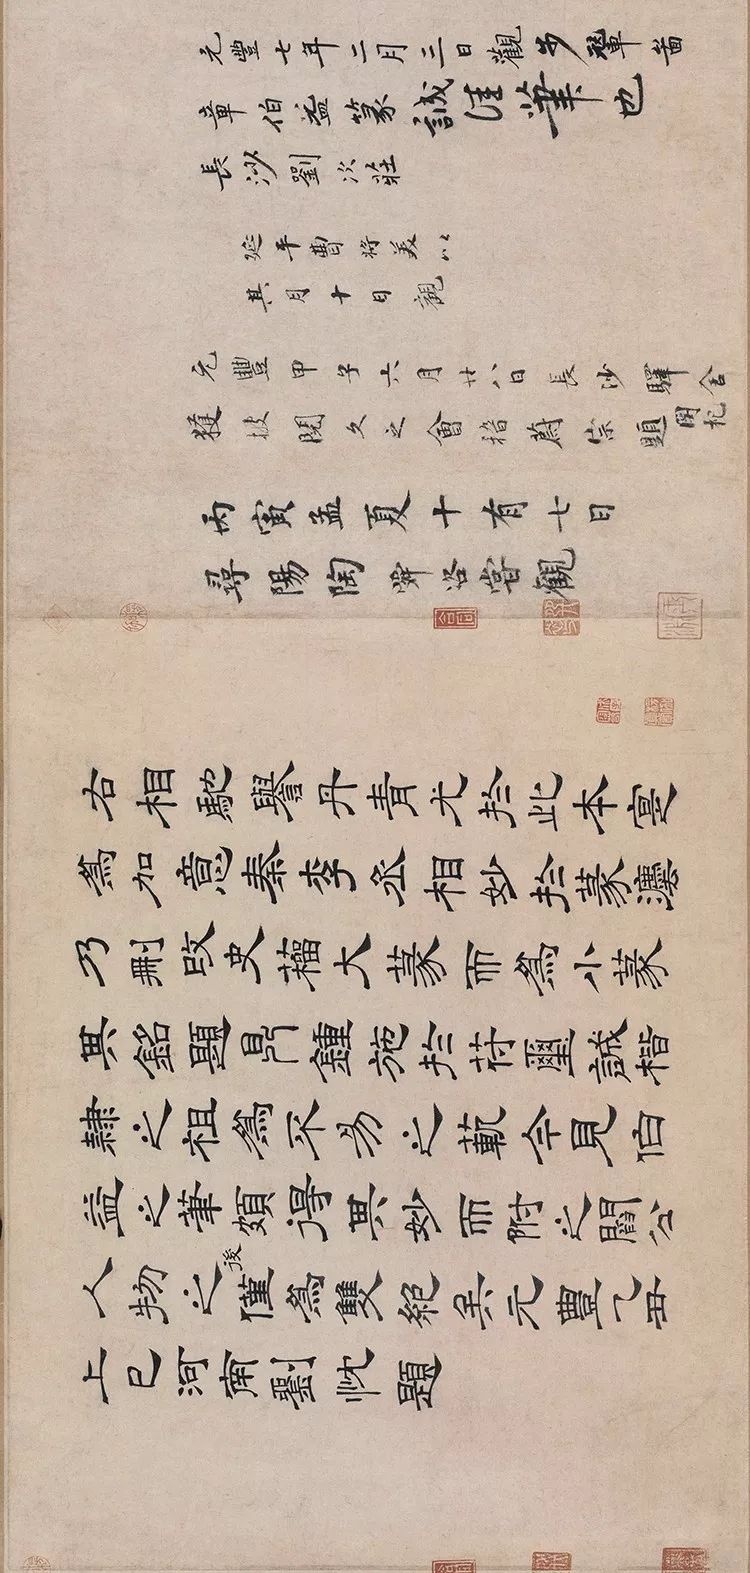 元豐七年二月三日觀步輦啚
章伯益篆誠佳筆也
長沙劉次莊
延平曹將美以
其月十日觀
元豐甲子六月廿八日長沙驛舍
獲披閱久之會稽蔚宗題関杞
丙寅孟夏十有七日
尋陽陶舜咨嘗觀
右相馳譽丹青尤於此本寔
為加意秦李丞相妙於篆灋
乃刪改史籀大篆而為小篆
其銘題鼎鍾施於苻璽誠楷
隷之祖為不易之軌今見伯
益之筆頗得其妙而附之閻公
人物之後僅為雙絕矣元豊乙丑
上巳河南劉忱題